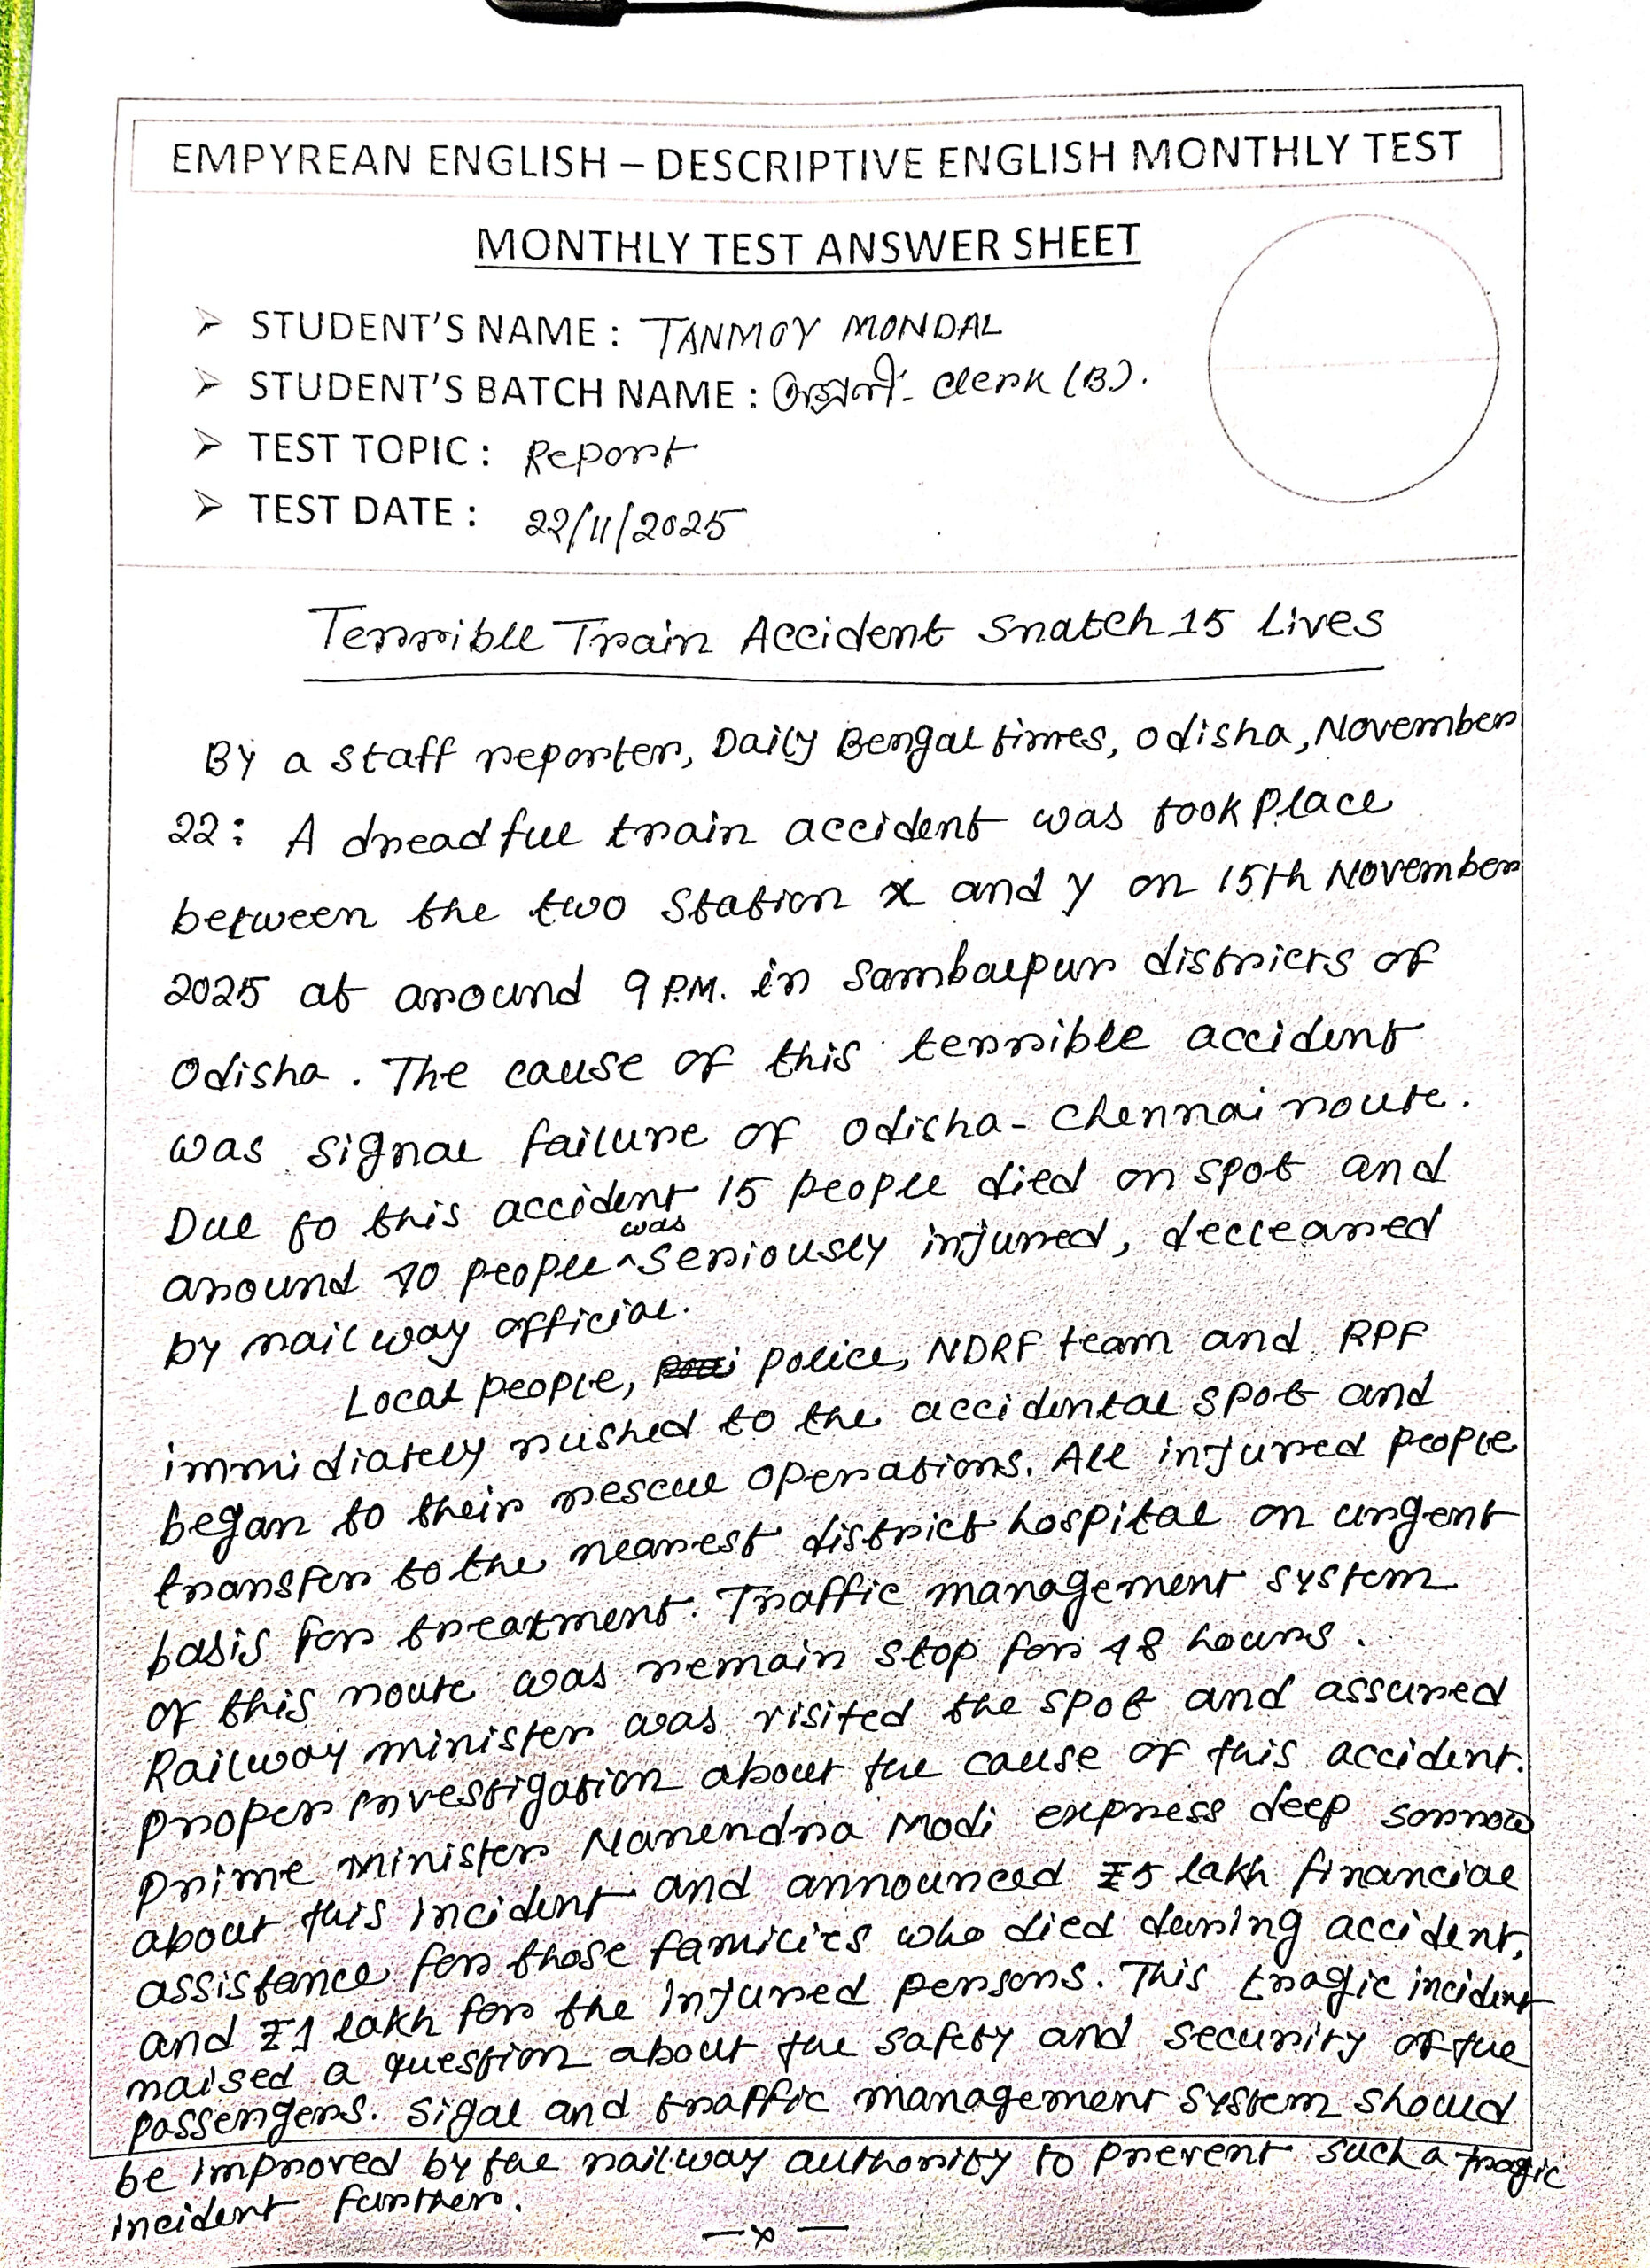 EMPYREAN ENGLISH – DESCRIPTIVE ENGLISH MONTHLY TEST
MONTHLY TEST ANSWER SHEET
➢ STUDENT'S NAME : TANMOY MONDAL
➢ STUDENT'S BATCH NAME : Clerk (B).
➢ TEST TOPIC : Report
➢ TEST DATE : 22/11/2025
Terrible Train Accident Snatch 15 Lives
By a staff reporter, Daily Bengal times, Odisha, November
22: A dreadful train accident was took place
between the two station x and y on 15th November
2025 at around 9 P.M. in Sambalpur districts of
Odisha. The cause of this terrible accident
was signal failure of Odisha-Chennai route.
Due to this accident 15 people died on spot and
around 40 people was seriously injured, decleared
by railway official.
Local people, police, NDRF team and RPF
immidiately rushed to the accidental spot and
began to their rescue operations. All injured people
transfer to the nearest district hospital on urgent
basis for treatment. Traffic management system
of this route was remain stop for 48 hours.
Railway minister was visited the spot and assured
proper investigation about the cause of this accident.
Prime minister Narendra Modi express deep sorrow
about this incident and announced ₹5 lakh financial
assistance for those families who died during accident,
and ₹1 lakh for the injured persons. This tragic incident
raised a question about the safety and security of the
passengers. Sigal and traffic management system should
be improved by the railway authority to prevent such a tragic
incident further.
—x—